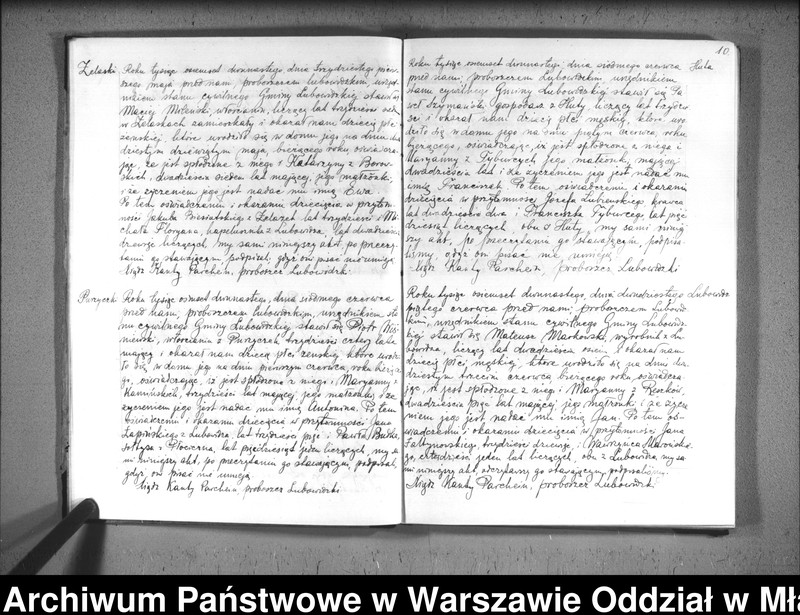 Żelaski Roku tysiąc osiemset dwunastego, dnia trzydziestego pierw-
szego maja przed nami, proboszczem lubowidzkim, urzęd-
nikiem stanu cywilnego Gminy Lubowidzkiej stawił się
Maciej włościanin, liczący lat trzydzieści
w Żelaskach zamieszkały i okazał nam dziecię płci
żeńskiej, które urodziło się w domu jego na dniu dwu-
dziestym dziewiątym maja, bieżącego roku oświadcza-
jąc, że jest spłodzone z niego i Katarzyny z
dwadzieścia siedem lat mającej, jego małżonki,
i że życzeniem jego jest nadać mu imię Ewa.
Po tem oświadczeniu i okazaniu dziecięcia w przytom-
ności Jakuba z Żelazk lat trzydzieści i Mi-
chała Floryana, z Lubowidza, lat dwadzieścia
liczących, my sami niniejszy akt, po przeczy-
taniu go stawającym podpisał, gdyż oni pisać nie umieją
Xiądz Kanty Parchem, proboszcz Lubowidzki
Purzyck Roku tysiąc osiemset dwunastego, dnia siódmego czerwca
przed nami, proboszczem lubowidzkim, urzędnikiem sta-
nu cywilnego Gminy Lubowidzkiej stawił się Piotr
włościanin z trzydzieści cztery lata
mający i okazał nam dziecię płci żeńskiej które urodzi-
ło się w domu jego na dniu pierwszym czerwca, roku bieżące-
go, oświadczając, iż jest spłodzone z niego i Maryanny z
Kamińskich, trzydzieści lat mającej, jego małżonki, i że
życzeniem jego jest nadać mu imię Antonina. Po tem
oświadczeniu i okazaniu dziecięcia w przytomności Jana
Łapińskiego z Lubowidza, lat trzydzieści pięć i Pawła
Sołtysa z lat pięćdziesiąt jeden liczących, my sa-
mi niniejszy akt, po przeczytaniu go stawającym, podpisał
gdyż oni pisać nie umieją.
Xiądz Kanty Parchem, proboszcz Lubowidzki
10
Roku tysiąc osiemset dwunastego, dnia siódmego czerwca Huta
przed nami, proboszczem Lubowidzkim, urzędnikiem
stanu cywilnego Gminy Lubowidzkiej stawił się Pa-
weł Szymański gospodarz z Huty, liczący lat trzydzie-
ści i okazał nam dziecię płci męskiej, które uro-
dziło się w domu jego na dniu piątym czerwca, roku
bieżącego, oświadczając, iż jest spłodzone z niego i
Maryanny z Tyburcych, jego małżonki, mającej
dwadzieścia lat i że życzeniem jego jest nadać mu
imię Franciszek. Po tem oświadczeniu i okazaniu
dziecięcia w przytomności Józefa Lubienskiego, krawca
lat dwadzieścia dwa i Franciszka Tyburcego lat pięć-
dziesiąt liczących, obu z Huty, my sami niniej-
szy akt, po przeczytaniu go stawającym, podpisa-
liśmy, gdyż oni pisać nie umieją
Xiądz Kanty Parchem, proboszcz Lubowidzki
Roku tysiąc osiemset dwunastego, dnia dwudziestego Lubowidz
piątego czerwca przed nami, proboszczem Lubowidz-
kim, urzędnikiem stanu cywilnego Gminy Lubowidz-
kiej stawił się Mateusz Markowski, wyrobnik z Lu-
bowidza, liczący lat dwadzieścia osiem i okazał nam
dziecię płci męskiej, które urodziło się na dniu dwu-
dziestym trzecim czerwca bieżącego roku oświadcza-
jąc, iż jest spłodzone z niego i Maryanny z
dwadzieścia pięć lat mającej jego małżonki i że życze-
niem jego jest nadać mu imię Jan. Po tem oś-
wiadczeniu i okazaniu dziecięcia w przytomności Jana
Faltynowskiego, trzydzieści i Wawrzyńca
go, czterdzieści jeden lat liczących, obu z Lubowidza, my sa-
mi niniejszy akt, stawającym, podpisaliśmy.
Xiądz Kanty Parchem, proboszcz Lubowidzki
Archiwum Państwowe w Warszawie Oddział w Mł